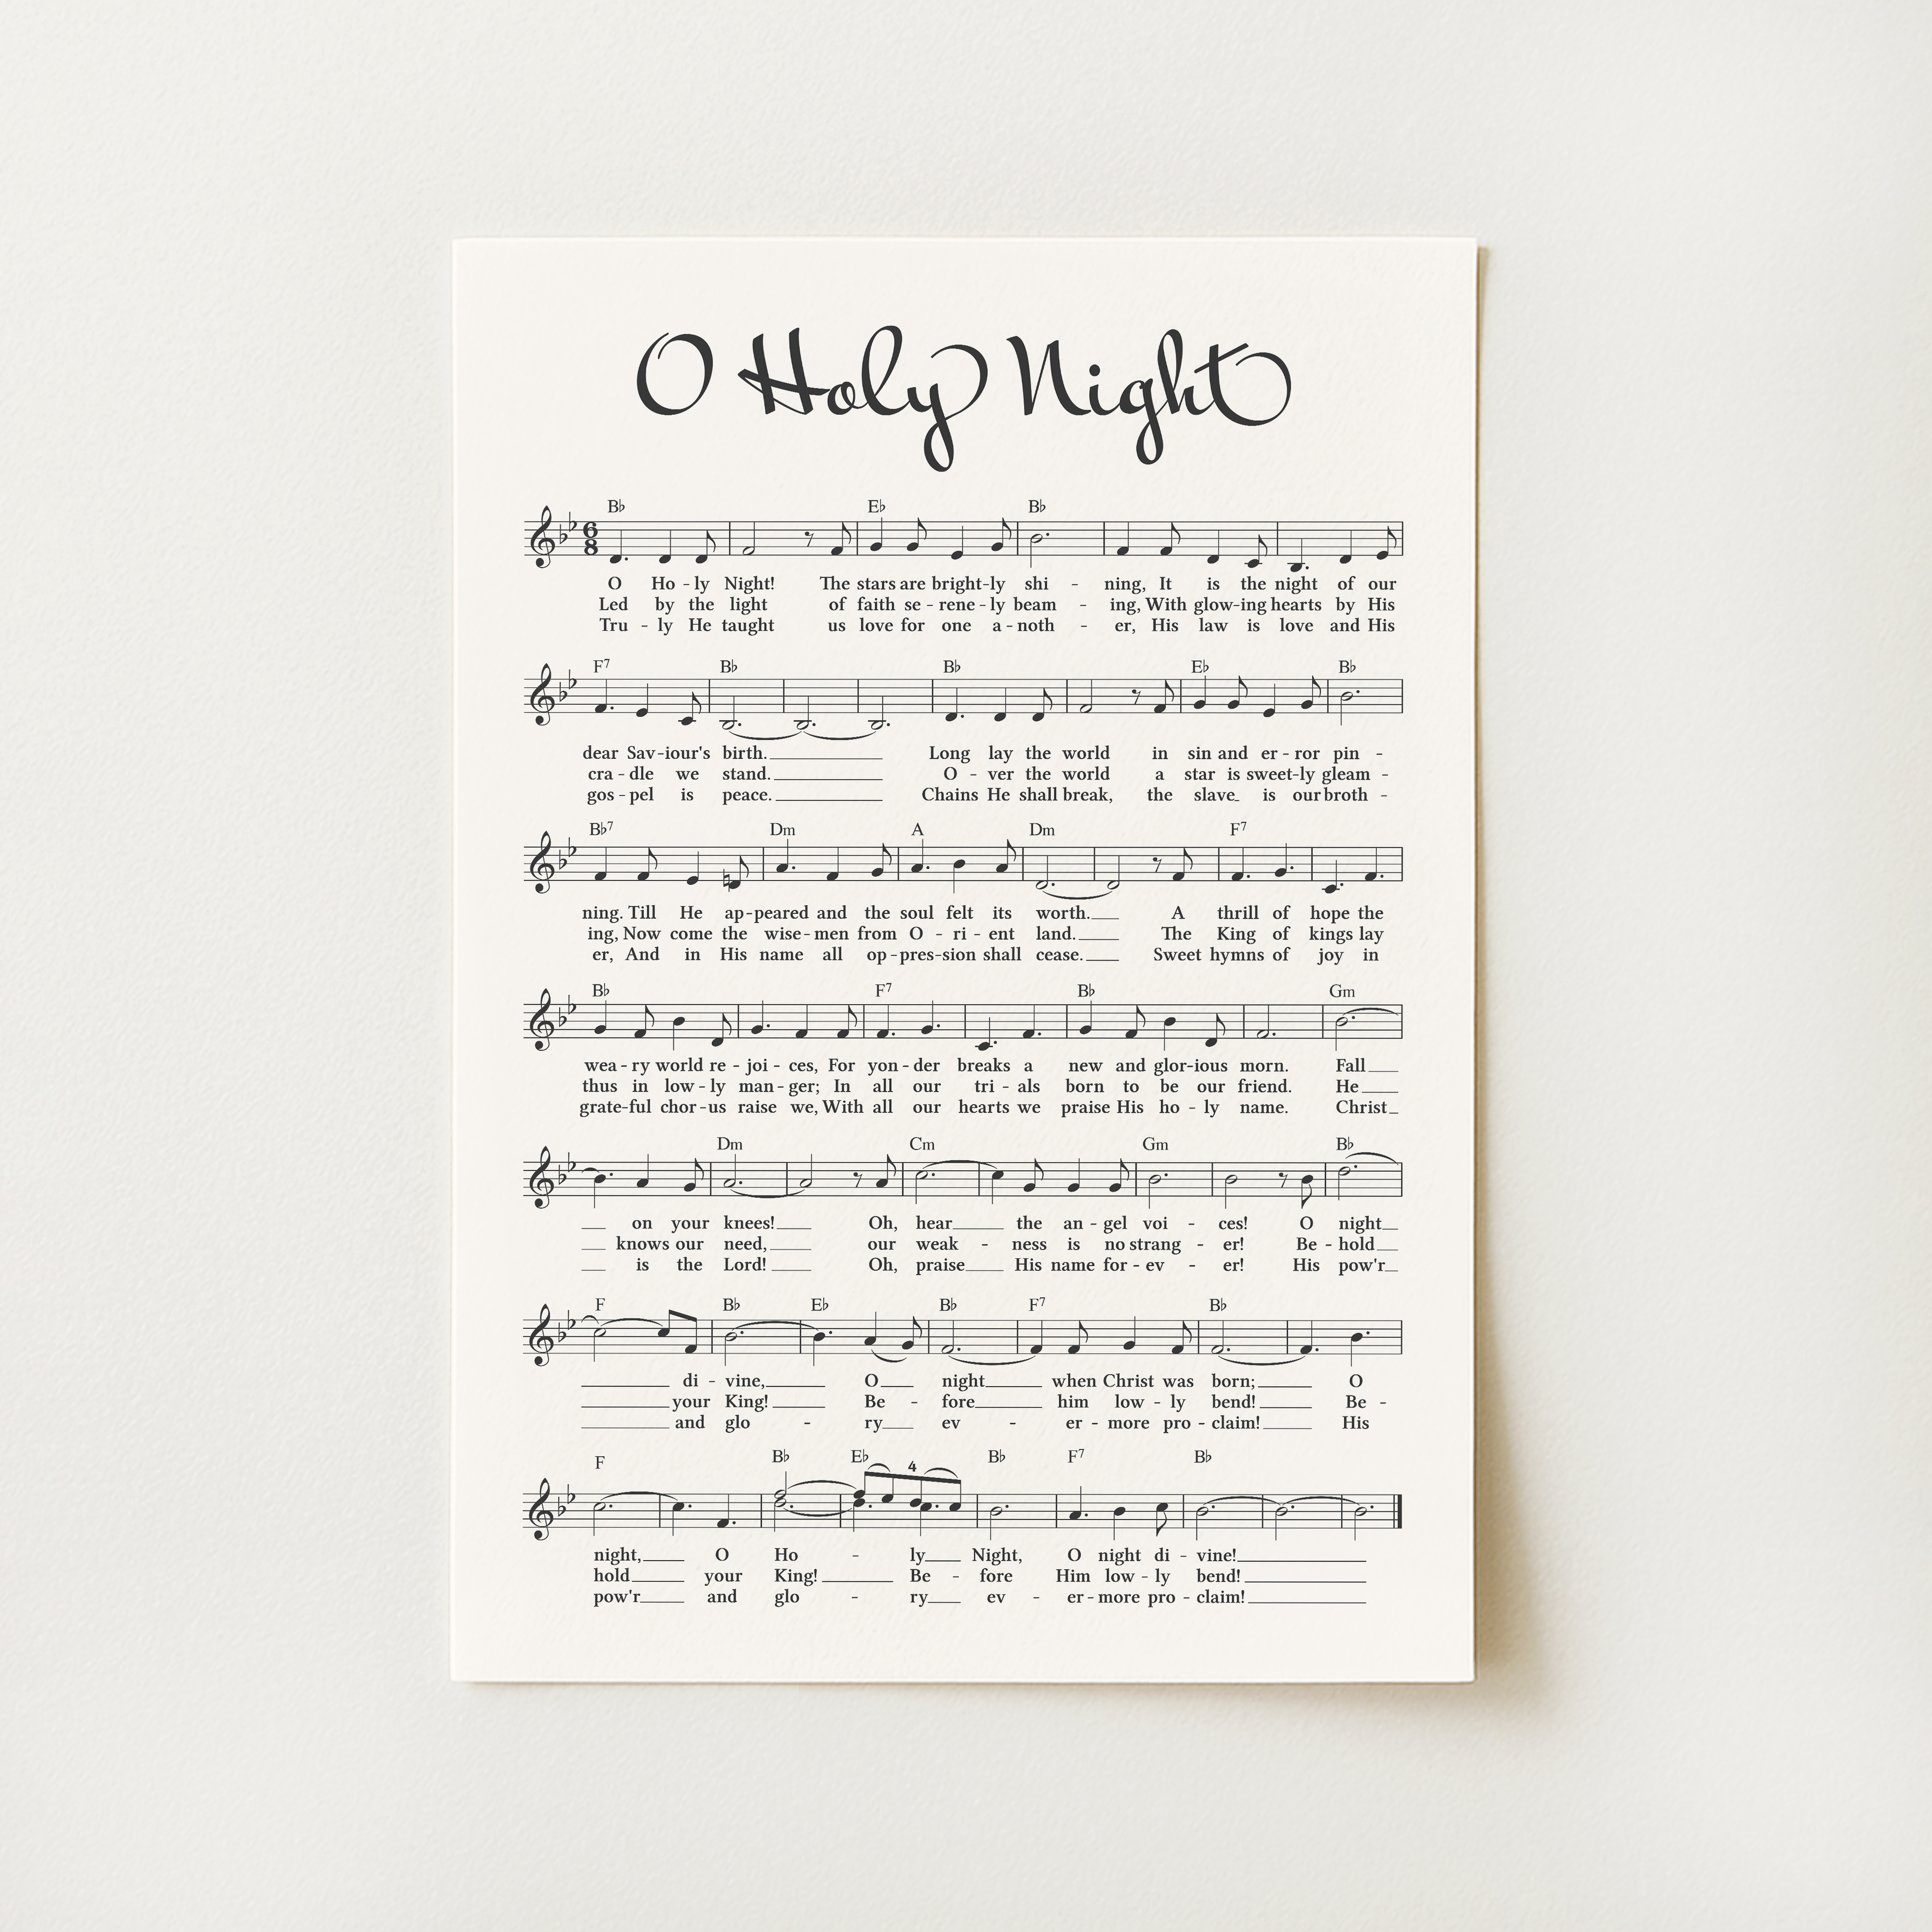 O Holy Night
B♭ E♭ B♭
6 8
O Ho - ly Night! The stars are bright-ly shi - ning, It is the night of our
Led by the light of faith se - rene - ly beam - ing, With glow-ing hearts by His
Tru - ly He taught us love for one a - noth - er, His law is love and His
F7 B♭ B♭ E♭ B♭
dear Sav-iour's birth. Long lay the world in sin and er - ror pin -
cra - dle we stand. O - ver the world a star is sweet-ly gleam -
gos - pel is peace. Chains He shall break, the slave is our broth -
B♭7 Dm A Dm F7
ning. Till He ap-peared and the soul felt its worth. A thrill of hope the
ing, Now come the wise-men from O - ri - ent land. The King of kings lay
er, And in His name all op-pres-sion shall cease. Sweet hymns of joy in
B♭ F7 B♭ Gm
wea - ry world re - joi - ces, For yon - der breaks a new and glor-ious morn. Fall
thus in low - ly man - ger; In all our tri - als born to be our friend. He
grate-ful chor-us raise we, With all our hearts we praise His ho - ly name. Christ
Dm Cm Gm B♭
on your knees! Oh, hear the an - gel voi - ces! O night
knows our need, our weak - ness is no strang - er! Be - hold
is the Lord! Oh, praise His name for - ev - er! His pow'r
F B♭ E♭ B♭ F7 B♭
di - vine, O night when Christ was born; O
your King! Be - fore him low - ly bend! Be -
and glo - ry ev - er - more pro - claim! His
F B♭ E♭ 4 B♭ F7 B♭
night, O Ho - ly Night, O night di - vine!
hold your King! Be - fore Him low - ly bend!
pow'r and glo - ry ev - er - more pro - claim!